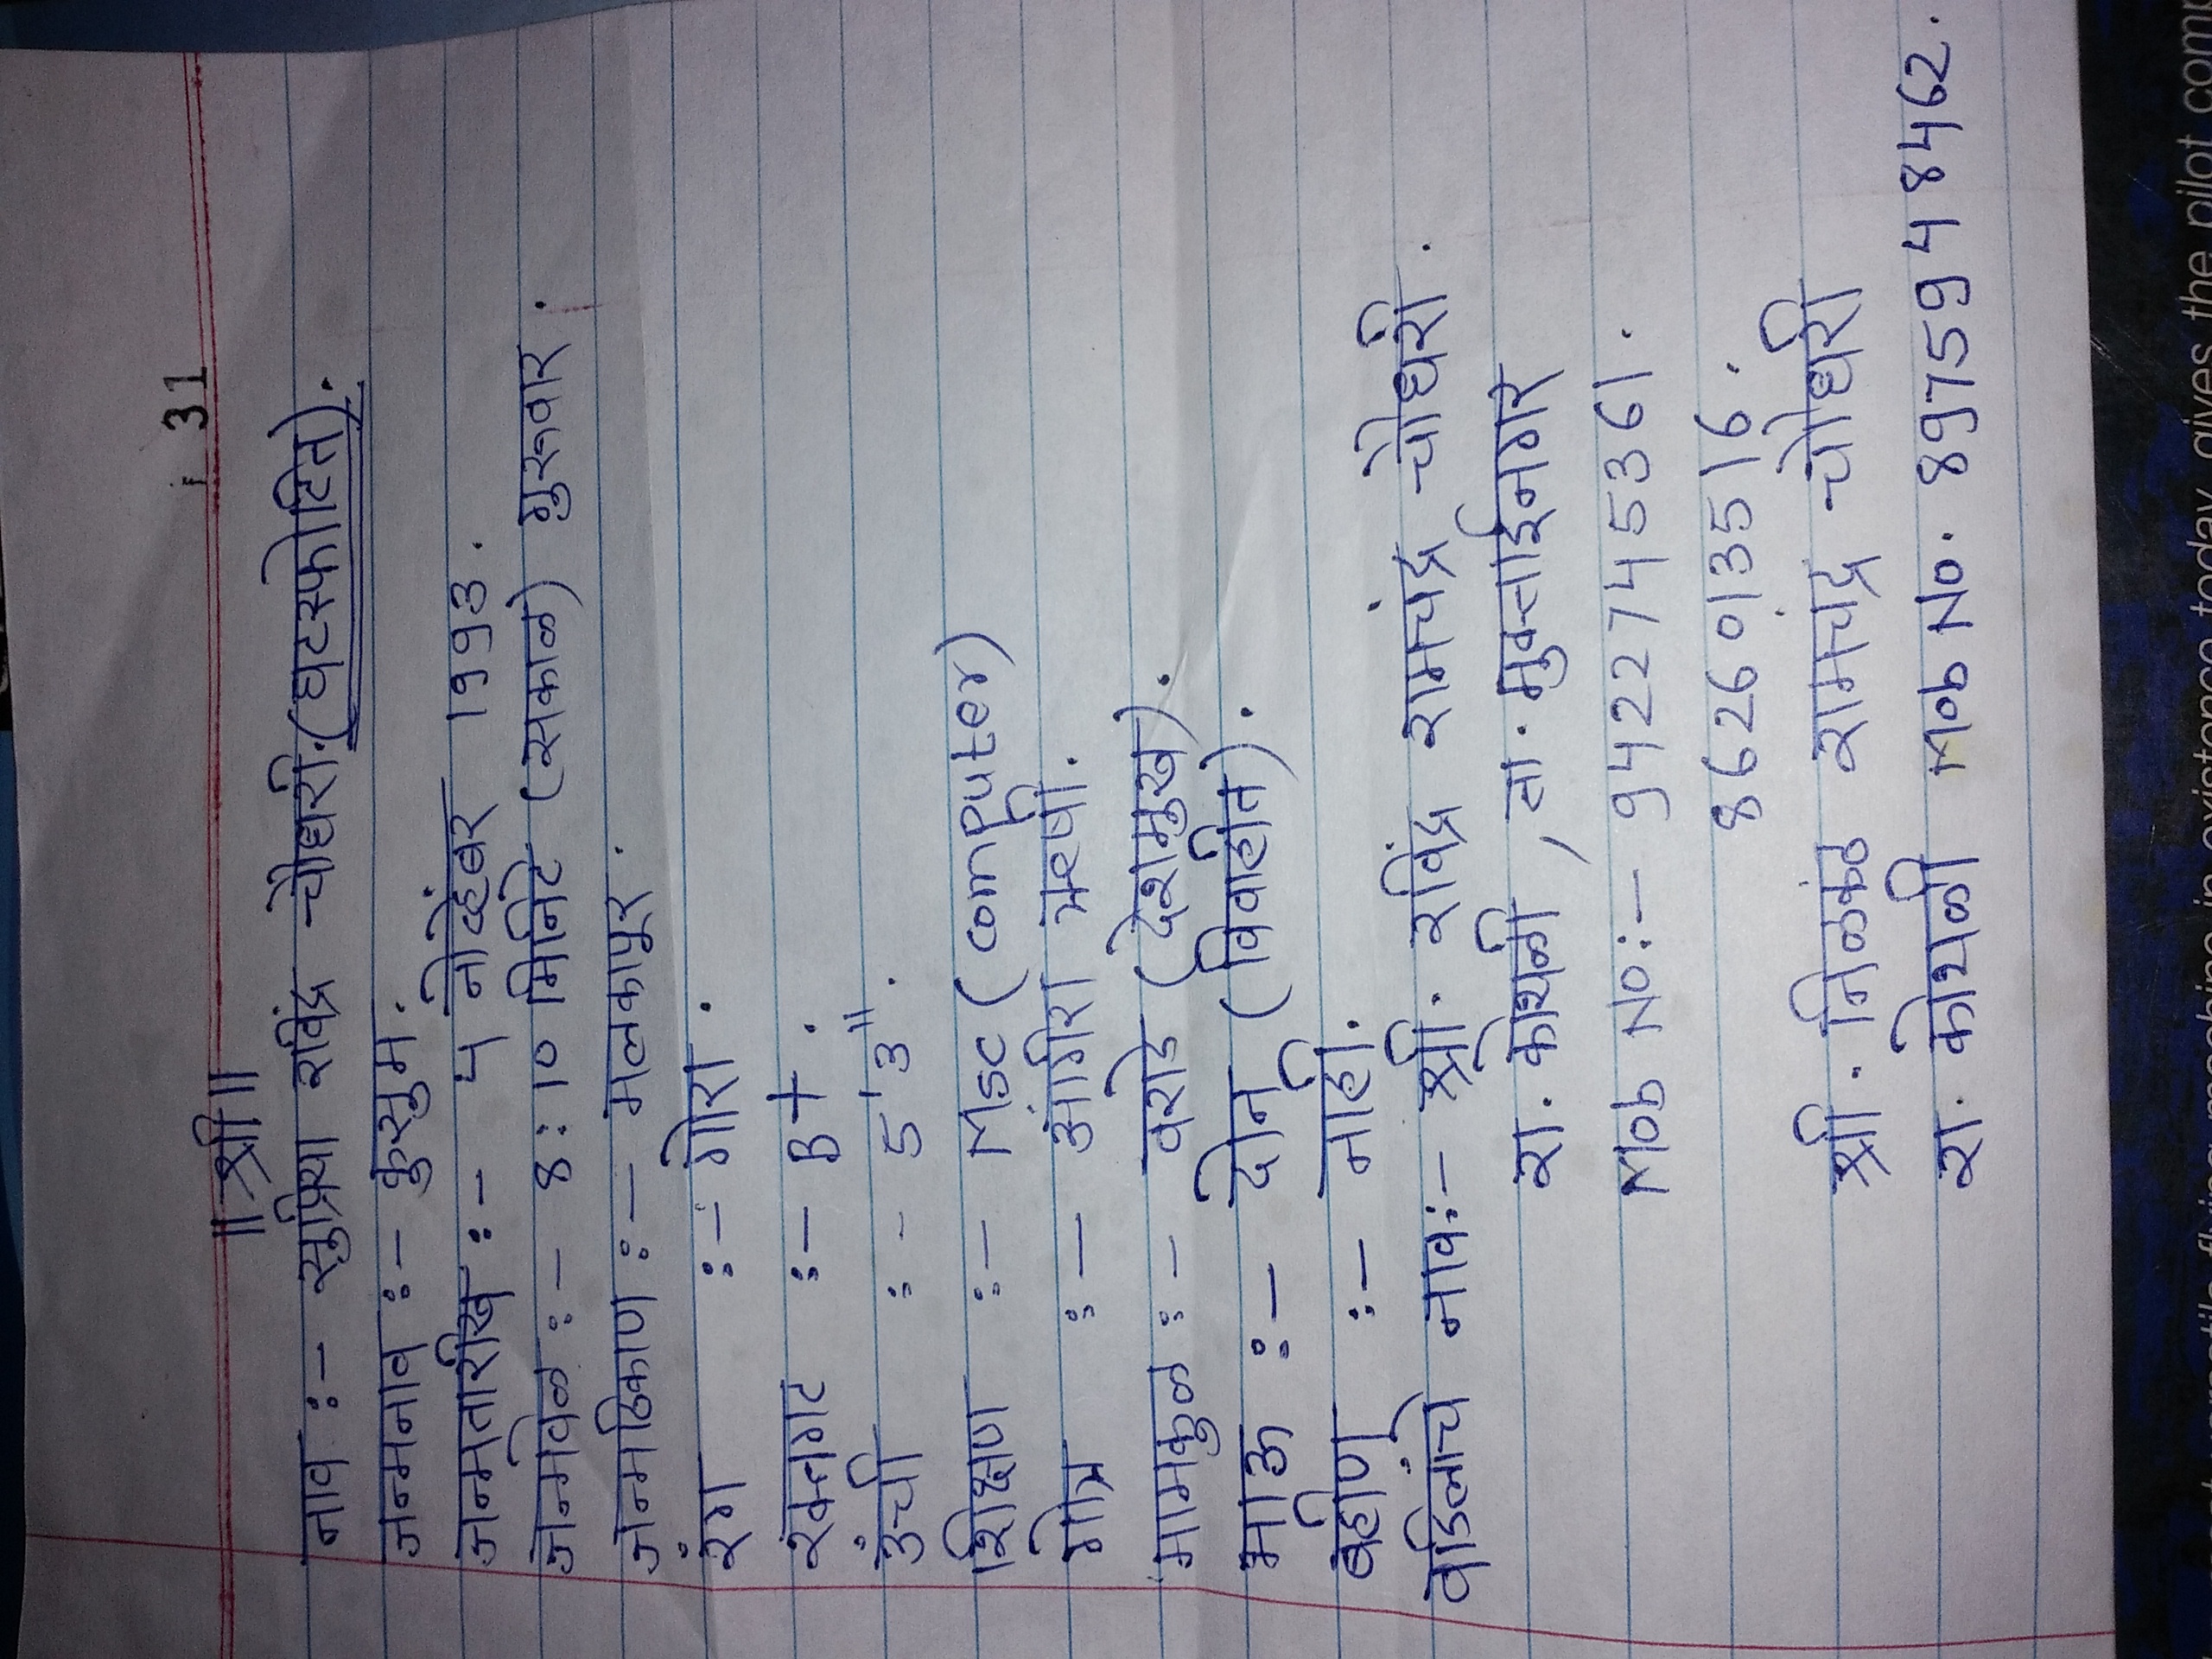 31
॥ श्री ॥
नाव :- सुप्रिया रविंद्र चौधरी. (घटस्फोटित).
जन्मनाव :- कुसुम.
जन्मतारीख :- ५ नोव्हेंबर 1993.
जन्मवेळ :- 8:10 मिनिटे (सकाळ) गुरूवार.
जन्मठिकाण :- मलकापूर.
रंग :- गोरा.
रक्तगट :- B+.
उंची :- 5'3".
शिक्षण :- Msc (computer)
गोत्र :- अंगिरा ऋषी.
मामकुळ :- वराडे (देशमुख).
भाऊ :- दोन (विवाहीत).
बहीण :- नाही.
वडिलांचे नाव:- श्री. रविंद्र रामचंद्र चौधरी.
रा. कोथळी, ता. मुक्ताईनगर
Mob No:- 9422745361.
8626013516.
श्री. निळकंठ रामचंद्र चौधरी
रा. कोथळी Mob No. 8975948462.